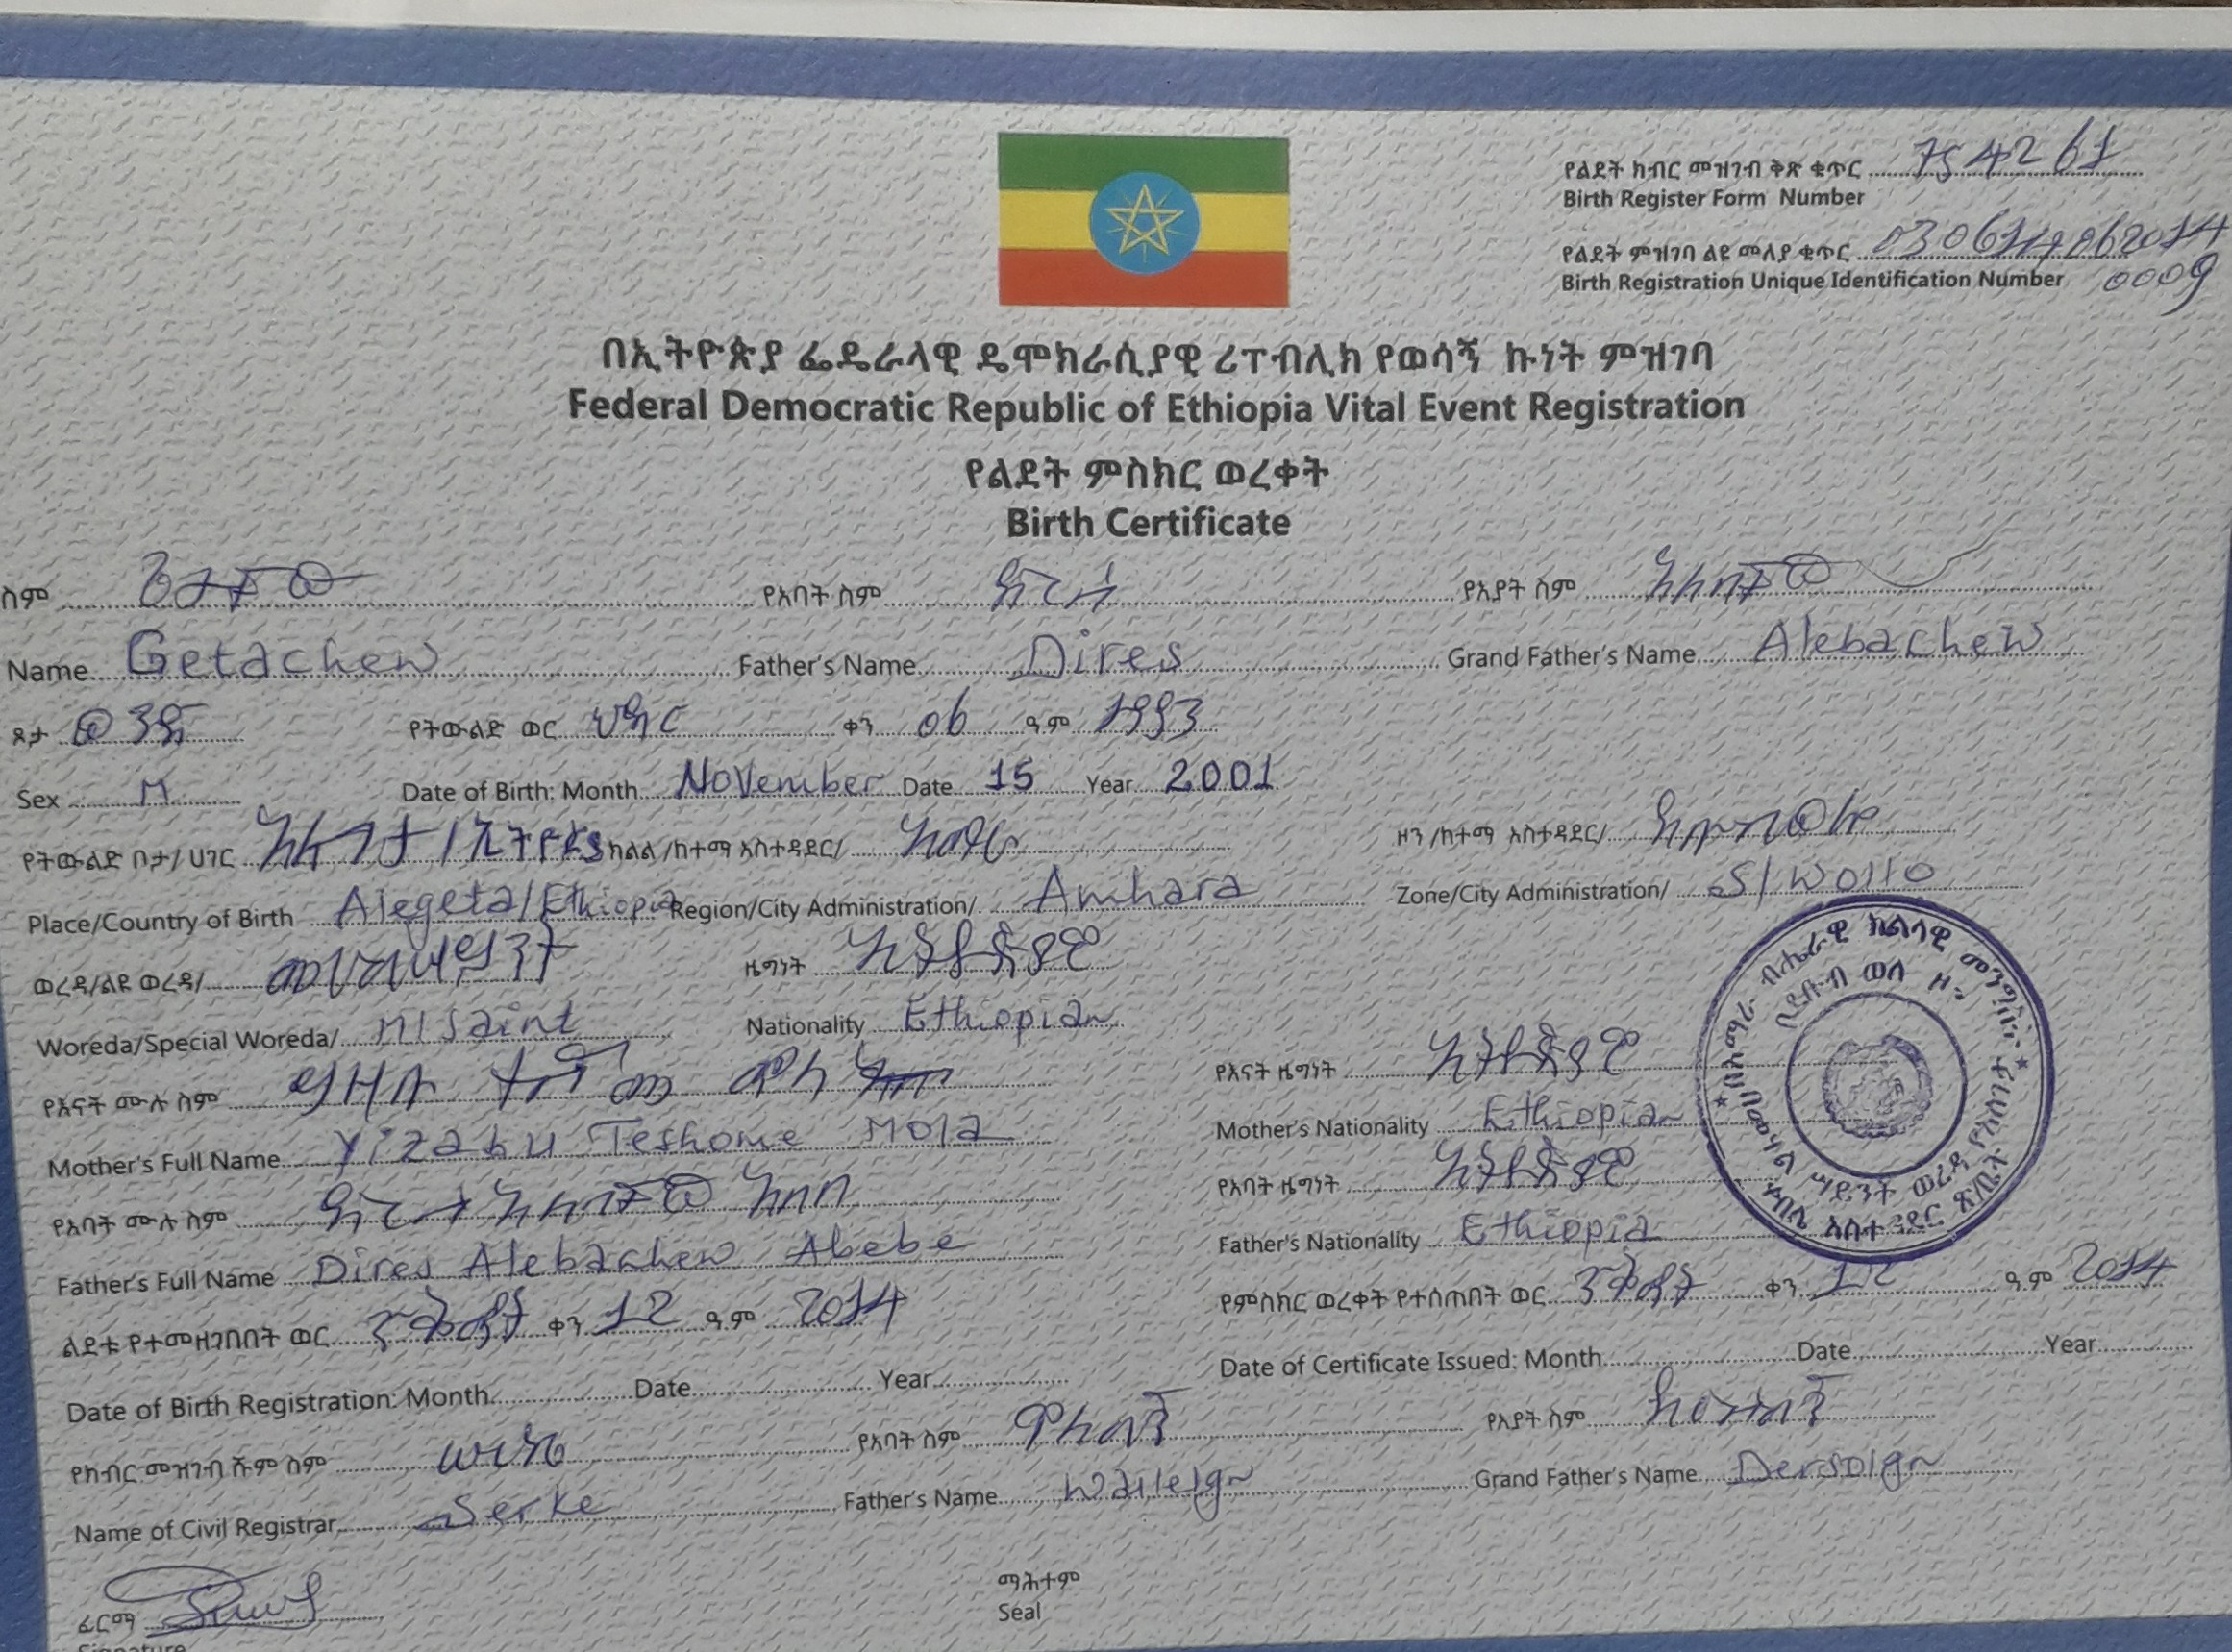 የልደት ክብር መዝገብ ቅጽ ቁጥር 754261
Birth Register Form Number
የልደት ምዝገባ ልዩ መለያ ቁጥር
Birth Registration Unique Identification Number 0009
በኢትዮጵያ ፌዴራላዊ ዴሞክራሲያዊ ሪፐብሊክ የወሳኝ ኩነት ምዝገባ
Federal Democratic Republic of Ethiopia Vital Event Registration
የልደት ምስክር ወረቀት
Birth Certificate
ስም ጌታቸው የአባት ስም ድረስ የአያት ስም አለባቸው
Name Getachew Father's Name Dires Grand Father's Name Alebachew
ጾታ ወንድ የትውልድ ወር ህዳር ቀን 06 ዓ.ም 1993
Sex M Date of Birth: Month November Date 15 Year 2001
የትውልድ ቦታ/ ሀገር አለጌታ/ኢትዮጵያ ክልል /ከተማ አስተዳደር/ አማራ ዞን /ከተማ አስተዳደር/
Place/Country of Birth Alegeta/Ethiopia Region/City Administration/ Amhara Zone/City Administration/ S/Wollo
ወረዳ/ልዩ ወረዳ/ መሀልሳይንት ዜግነት ኢትዮጵያዊ
Woreda/Special Woreda/ M/Saint Nationality Ethiopian
የእናት ሙሉ ስም ተሾመ ሞላ የእናት ዜግነት ኢትዮጵያዊ
Mother's Full Name Teshome Mola Mother's Nationality Ethiopian
የአባት ሙሉ ስም ድረስ አለባቸው አበበ የአባት ዜግነት ኢትዮጵያዊ
Father's Full Name Dires Alebachew Abebe Father's Nationality Ethiopia
ልደቱ የተመዘገበበት ወር ጥቅምት ቀን 12 ዓ.ም 2014 የምስክር ወረቀት የተሰጠበት ወር ጥቅምት ቀን 12 ዓ.ም 2014
Date of Birth Registration: Month Date Year Date of Certificate Issued: Month Date Year
የክብር መዝገብ ሹም ስም የአባት ስም ዋለልኝ የአያት ስም ደርሶልኝ
Name of Civil Registrar Serke Father's Name Walleign Grand Father's Name Dersolgn
ፊርማ ማሕተም
Signature Seal